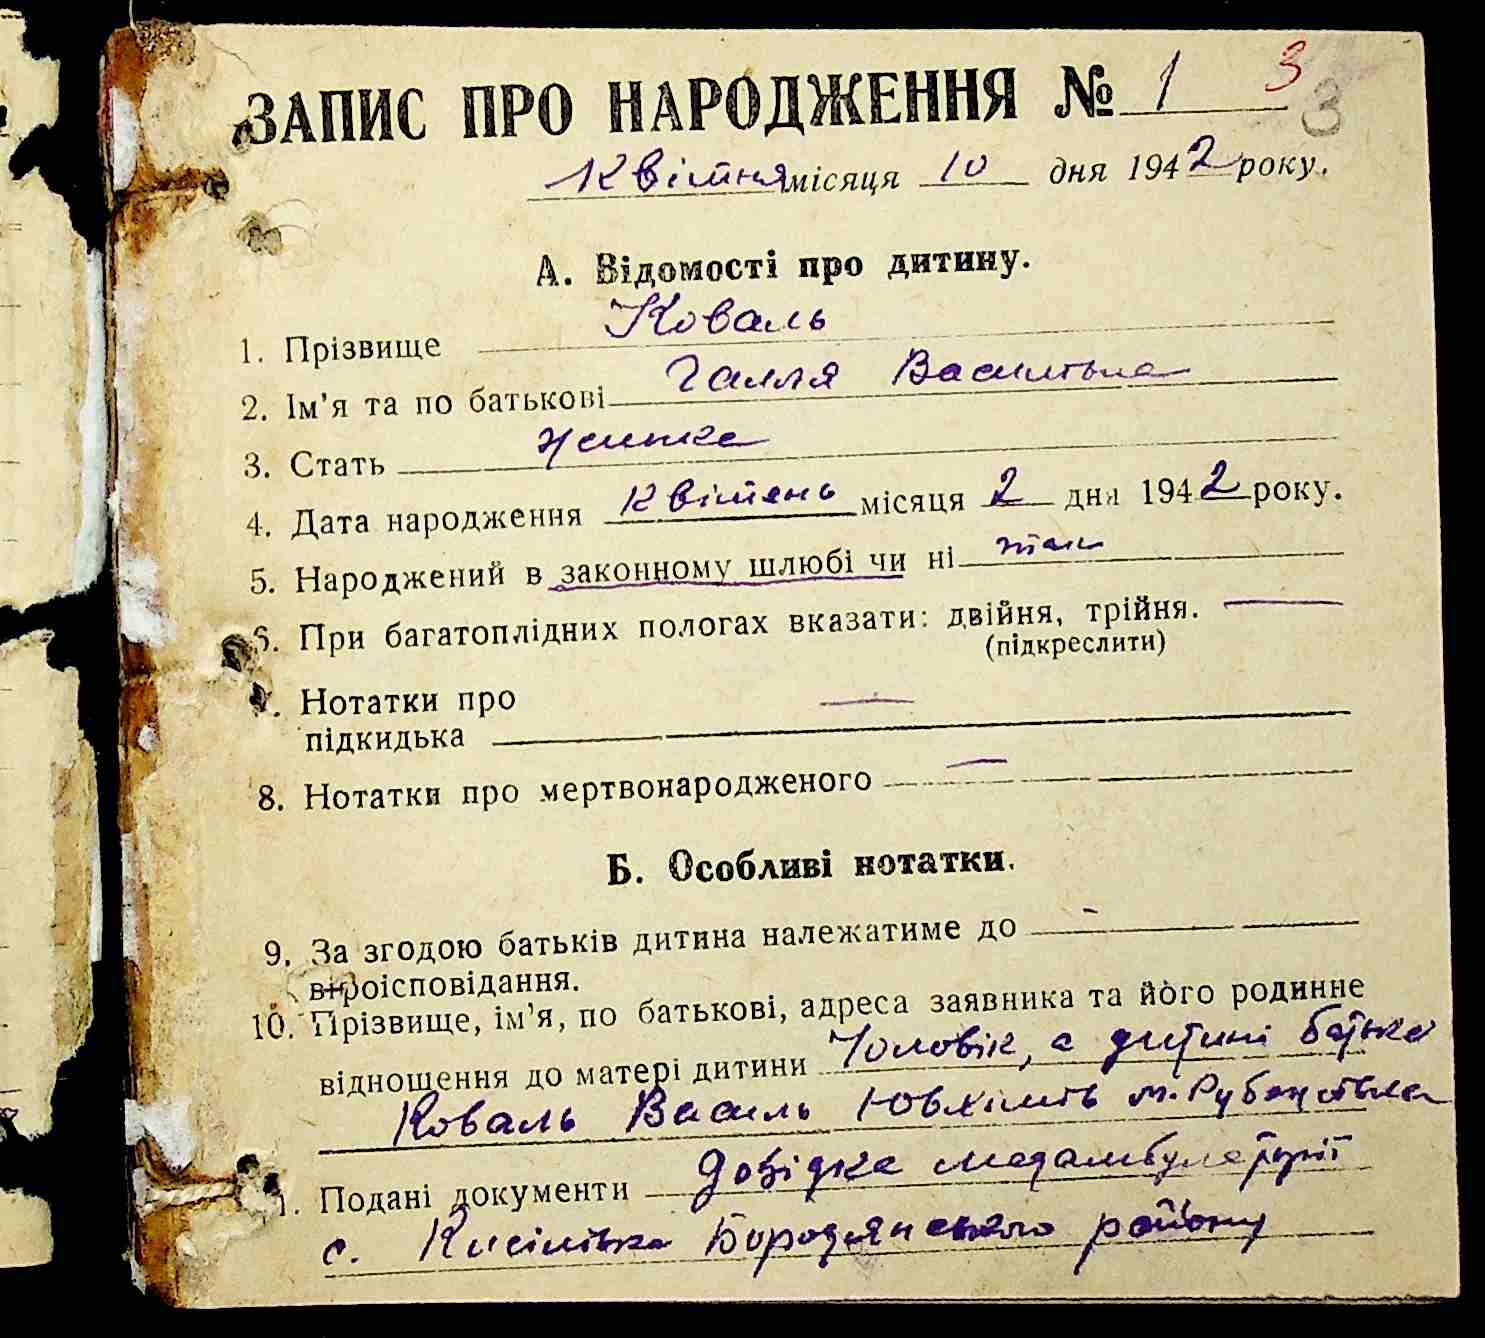 ЗАПИС ПРО НАРОДЖЕННЯ № 1 3
3
Квітня місяця 10 дня 1942 року.
А. Відомості про дитину.
1. Прізвище Коваль
2. Ім'я та по батькові Галля
3. Стать жінка
4. Дата народження Квітень місяця 2 дня 1942 року.
5. Народжений в законному шлюбі чи ні так
6. При багатоплідних пологах вказати: двійня, трійня. —
(підкреслити)
7. Нотатки про —
підкидька
8. Нотатки про мертвонародженого —
Б. Особливі нотатки.
9. За згодою батьків дитина належатиме до —
віроісповідання.
10. Прізвище, ім'я, по батькові, адреса заявника та його родинне
відношення до матері дитини Чоловік, а дитині батько
Коваль Василь
11. Подані документи Довідка медамбулаторії
с. Бородянського району